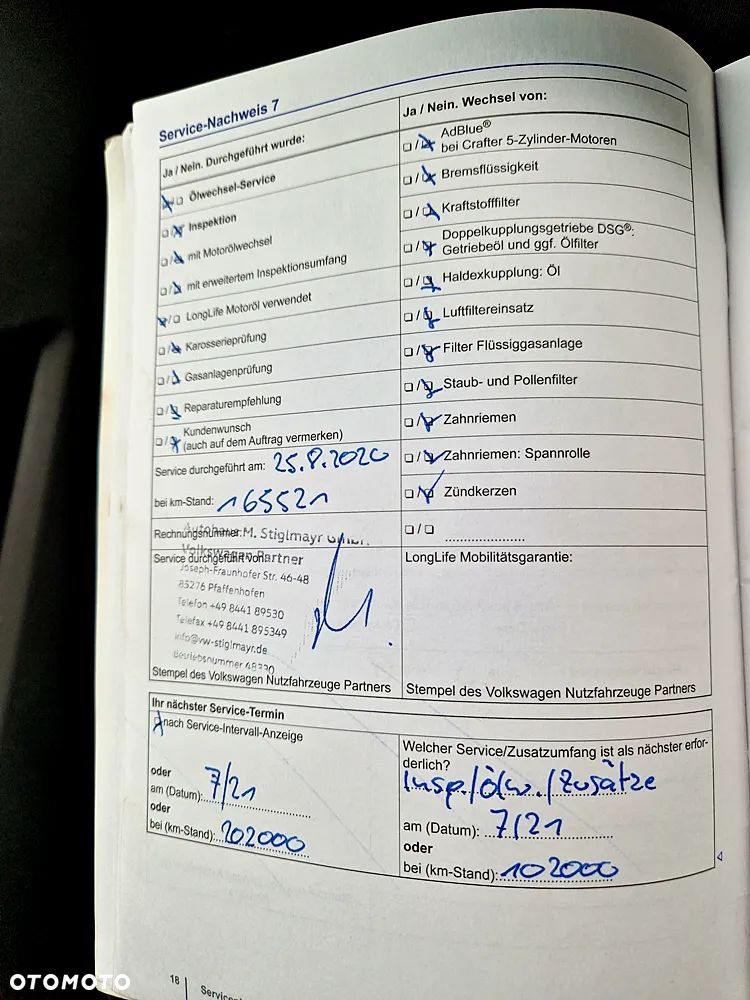 Service-Nachweis 7
Ja / Nein. Durchgeführt wurde:
☒/☐ Ölwechsel-Service
☐/☒ Inspektion
☐/☒ mit Motorölwechsel
☐/☒ mit erweitertem Inspektionsumfang
☒/☐ LongLife Motoröl verwendet
☐/☒ Karosserieprüfung
☐/☒ Gasanlagenprüfung
☐/☒ Reparaturempfehlung
☐/☒ Kundenwunsch
(auch auf dem Auftrag vermerken)
Service durchgeführt am: 25.8.2020
bei km-Stand: 165521
Rechnungsnummer:
Autohaus M. Stiglmayr GmbH.
Service durchgeführt von:
Volkswagen Partner
Joseph-Fraunhofer Str. 46-48
85276 Pfaffenhofen
Telefon +49 8441 89530
Telefax +49 8441 895349
info@vw-stiglmayr.de
Betriebsnummer
Stempel des Volkswagen Nutzfahrzeuge Partners
Ja / Nein. Wechsel von:
☐/☒ AdBlue®
bei Crafter 5-Zylinder-Motoren
☐/☒ Bremsflüssigkeit
☐/☒ Kraftstofffilter
☐/☒ Doppelkupplungsgetriebe DSG®:
Getriebeöl und ggf. Ölfilter
☐/☒ Haldexkupplung: Öl
☐/☒ Luftfiltereinsatz
☐/☒ Filter Flüssiggasanlage
☐/☒ Staub- und Pollenfilter
☐/☒ Zahnriemen
☐/☒ Zahnriemen: Spannrolle
☐/☒ Zündkerzen
☐/☐ ......................
LongLife Mobilitätsgarantie:
Stempel des Volkswagen Nutzfahrzeuge Partners
Ihr nächster Service-Termin
☒ nach Service-Intervall-Anzeige
oder
am (Datum): 7/21
oder
bei (km-Stand): 202000
Welcher Service/Zusatzumfang ist als nächster erfor-
derlich?
Insp./Ölw./Zusätze
am (Datum): 7/21
oder
bei (km-Stand): 102000
18
OTOMOTO